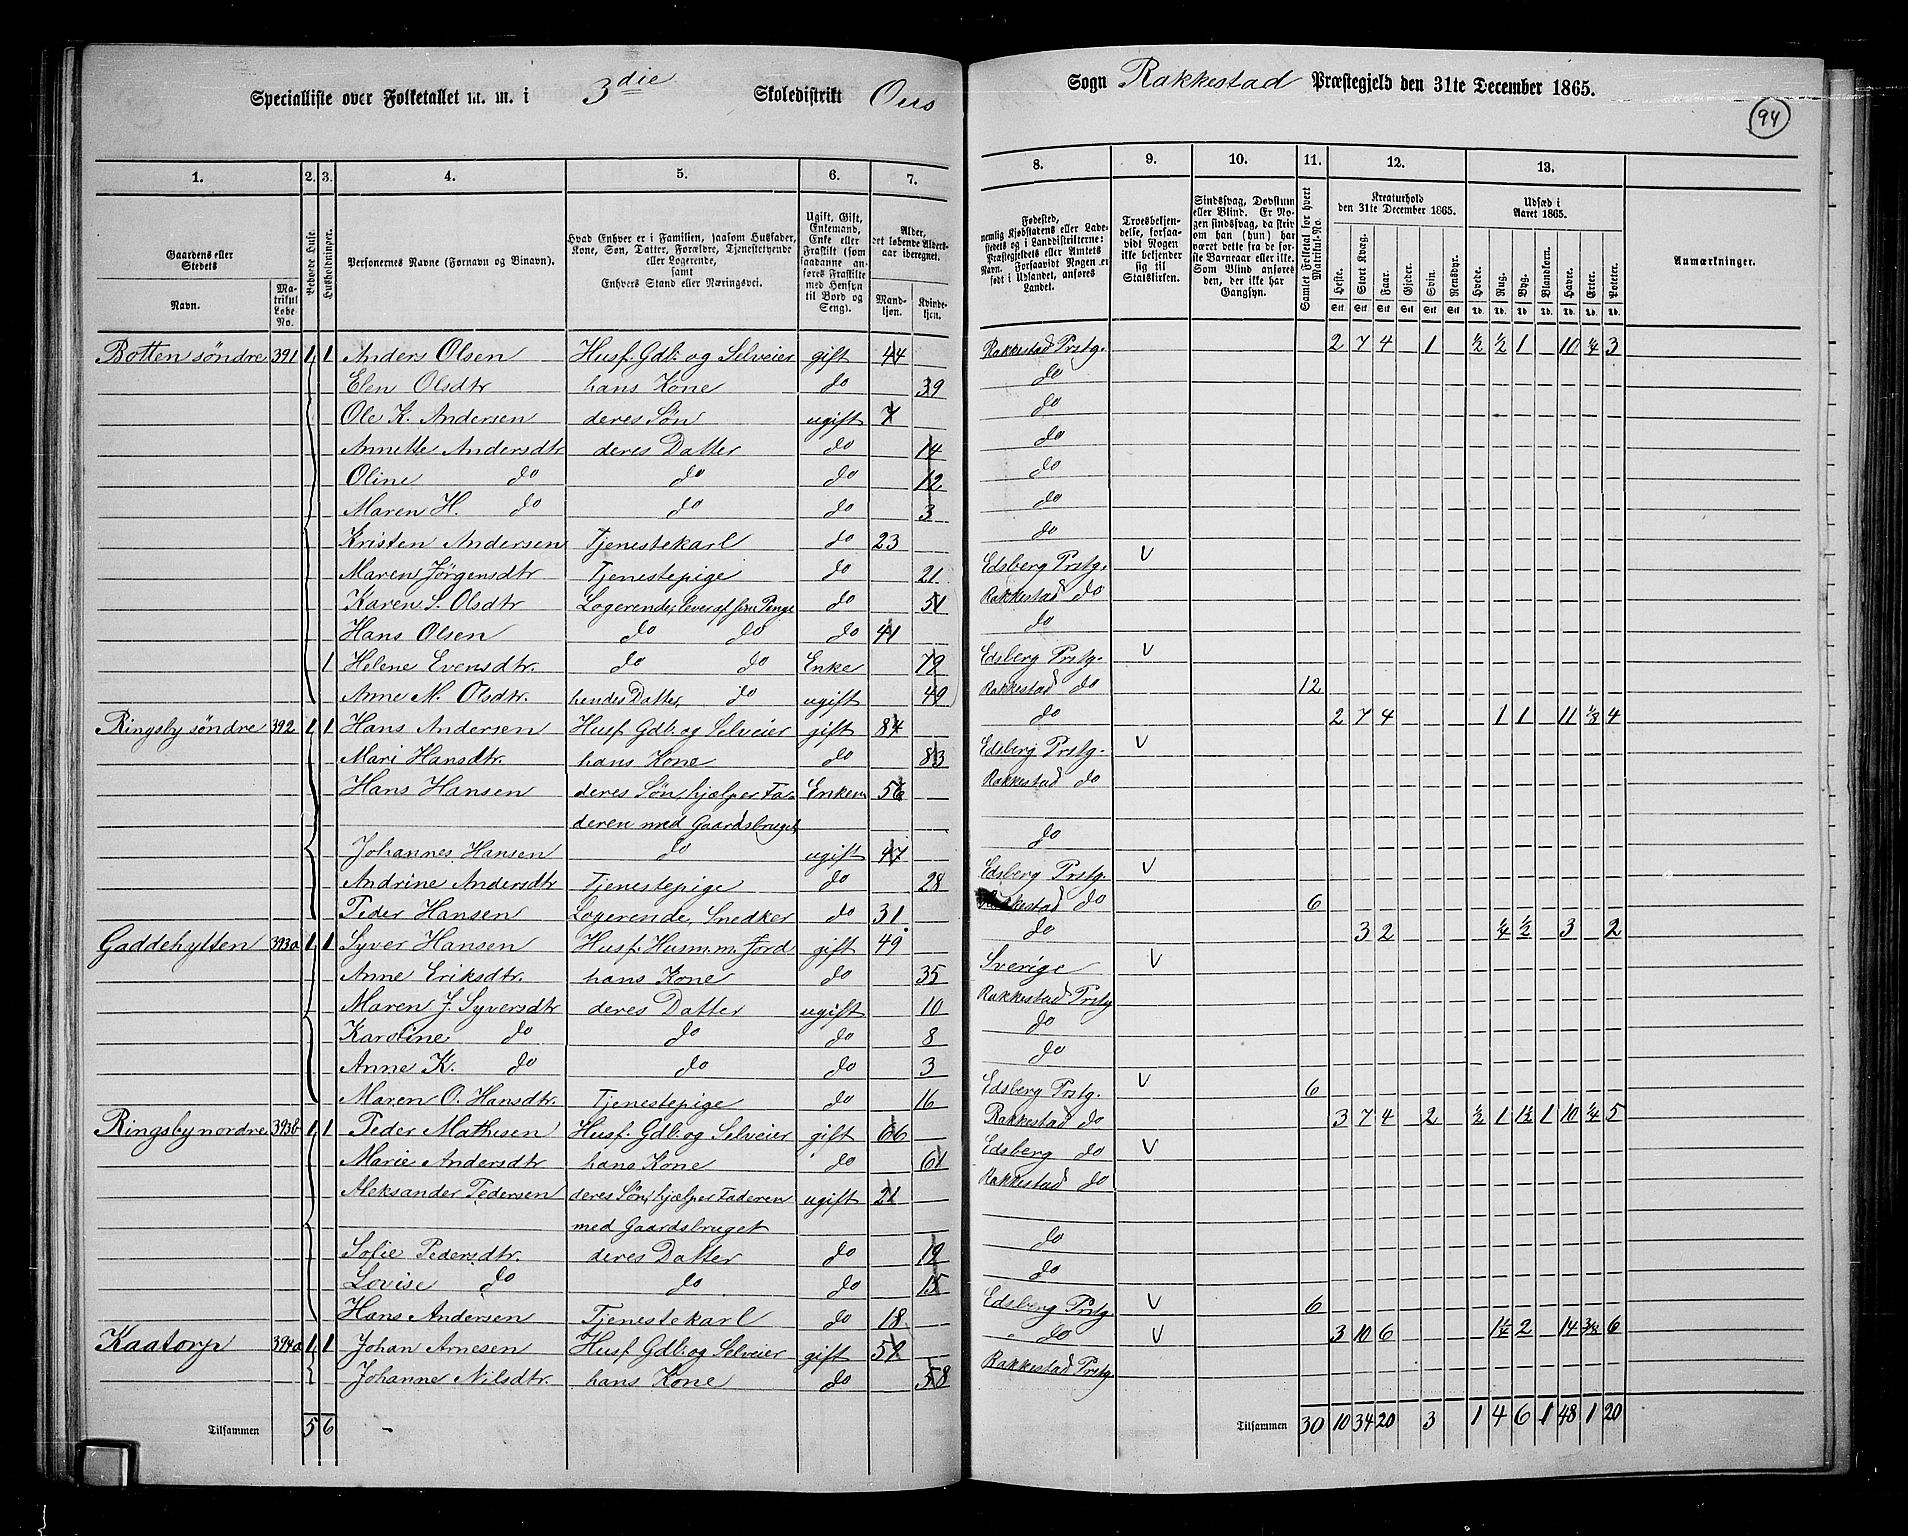 Specialliste over Folketallet m. m. i 3die Skoledistrikt Ous
Sogn Rakkestad Præstegjeld den 31te December 1865.
94
1. 2. 3. 4. 5. 6. 7.
8. 9. 10. 11. 12. 13.
Gaardens eller Stedets
Navn.
Matrikul Løbe No.
Beboede Huse.
Husholdninger.
Personernes Navne (Fornavn og Binavn).
Hvad Enhver er i Familien, saasom Husfader,
Kone, Søn, Datter, Forældre, Tjenestetyende
eller Logerende,
samt
Enhvers Stand eller Næringsvei.
Ugift, Gift,
Enkemand,
Enke eller
Fraskilt (som
saadanne anføres Fraskilte
med Hensyn
til Bord og
Seng).
Alder,
det løbende Aldersaar iberegnet.
Mandkjøn.
Kvindekjøn.
Fødested,
nemlig Kjøbstadens eller Ladestedets og i Landdistrikterne:
Præstegjeldets eller Amtets
Navn. Forsaavidt Nogen er
født i Udlandet, anføres
Landet.
Troesbekjendelse, forsaavidt Nogen
ikke bekjender
sig til
Statskirken.
Sindssvag, Døvstum
eller Blind. Er Nogen sindssvag, da skrives
om han (hun) har
været dette fra de første Barneaar eller ikke.
Som Blind ansøres
den, der ikke har
Gangsyn.
Samlet Folketal for hvert Matrikul-No.
Kreaturhold
den 31te December 1865.
Heste. Stort Kvæg. Faar. Gjeder. Svin. Rensdyr.
Udsæd i
Aaret 1865.
Hvede. Rug. Byg. Blandkorn. Havre. Erter. Poteter.
Anmærkninger.
Botten søndre 391 1 1 Anders Olsen Husf. Gdb. og Selveier gift 44 Rakkestad Prstg. 2 7 4 1 ½ ½ 1 10 ¼ 3
Elen Olsdtr hans Kone do 39 do
Ole K. Andersen deres Søn ugift 7 do
Annette Andersdtr deres Datter do 14 do
Oline do do do 12 do
Maren H. do do do 3 do
Kristen Andersen Tjenestekarl do 23 do
Maren Jørgensdtr Tjenestepige do 21 Edsberg Prstg. V
Karen S. Olsdtr Logerende, lever af sine Penge do 51 Rakkestad do
Hans Olsen do do do 41 do
1 Helene Evensdtr. do do Enke 79 Edsberg Prstg. V
Anne M. Olsdtr. hendes Datter, do ugift 49 Rakkestad do 12
Ringsby søndre 392 1 1 Hans Andersen Husf. Gdb. og Selveier gift 84 do 2 7 4 1 1 11 ⅛ 4
Mari Hansdtr. hans Kone do 83 Edsberg Prstg. V
Hans Hansen deres Søn, hjælper Fa- Enkem 56 Rakkestad do
deren med Gaardsbruget
Johannes Hansen do ugift 47 do
Andrine Andersdtr Tjenestepige do 28 Edsberg Prstg. V
Peder Hansen Logerende, Snedker do 31 Rakkestad do 6
Gaddehytten 393a 1 1 Syver Hansen Husf. Husm. m. Jord gift 49 do 3 2 ¼ ½ 3 2
Anne Eriksdtr. hans Kone do 35 Sverige V
Maren J. Syversdtr deres Datter ugift 10 Rakkestad Prstg
Karoline do do do 8 do
Anne K. do do do 3 do
Maren O. Hansdtr. Tjenestepige do 16 Edsberg Prstg. V 6
Ringsby nordre 393b 1 1 Peder Mathisen Husf. Gdb. og Selveier gift 66 Rakkestad do 3 7 4 2 ½ 1 1½ 1 10 ¼ 5
Marie Andersdtr hans Kone do 61 Edsberg do V
Aleksander Pedersen deres Søn, hjælper Faderen ugift 21 Rakkestad do
med Gaardsbruget
Sofie Pedersdtr. deres Datter do 19 do
Lovise do do do 15 do
Hans Andersen Tjenestekarl do 18 Edsberg Prstg V 6
Kaatorp 394a 1 1 Johan Arnesen Husf Gdb. og Selveier gift 59 " do V 3 10 6 1¼ 2 14 ⅜ 6
Johanne Nilsdtr. hans Kone do 58 Rakkestad Prstg
Tilsammen 5 6
Tilsammen 30 10 34 20 3 1 4 6 1 48 1 20